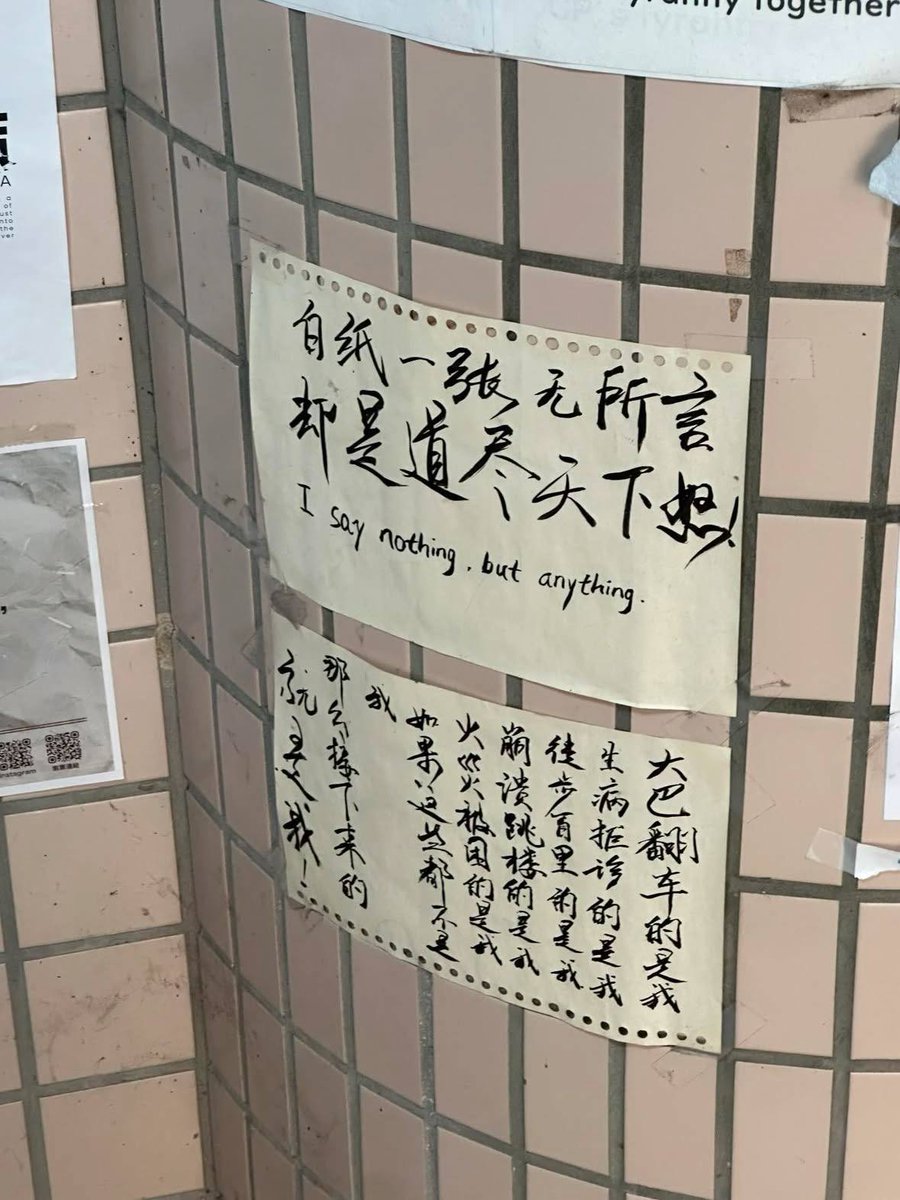 yranny Together
白纸一张无所言
却是道尽天下怒!
I say nothing, but anything.
大巴翻车的是我
生病拒诊的是我
徒步百里的是我
崩溃跳楼的是我
火災被困的是我
如果这些都不是
我
那么接下来的
就是我!
A
a
of
ust
nto
the
ver
nstagram